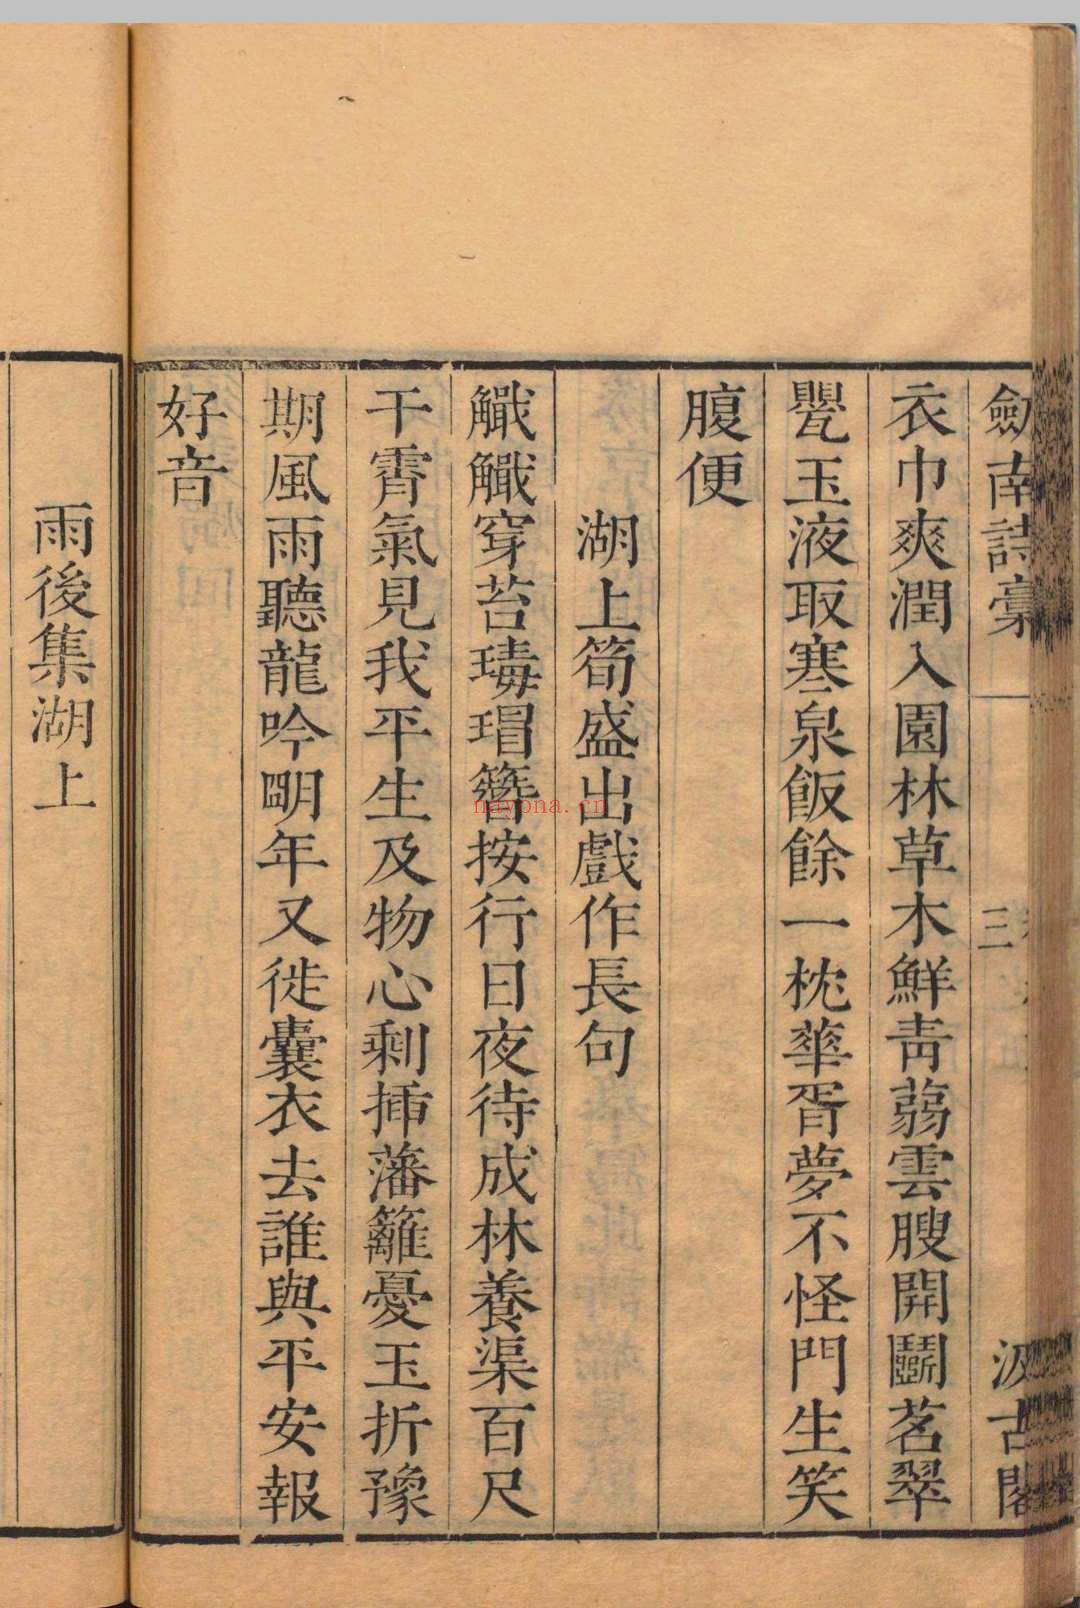 劎南詩稾 三 汲古閣
衣巾爽潤入園林草木鮮靑蒻雲腴開鬭茗翠
甖玉液取寒泉飯餘一枕華胥夢不怪門生笑
腹便
湖上筍盛出戲作長句
觿觿穿苔瑇瑁簪按行日夜待成林養渠百尺
干霄氣見我平生及物心剩揷藩籬憂玉折豫
期風雨聽龍吟明年又徙囊衣去誰與平安報
好音
雨後集湖上
nayona.cn